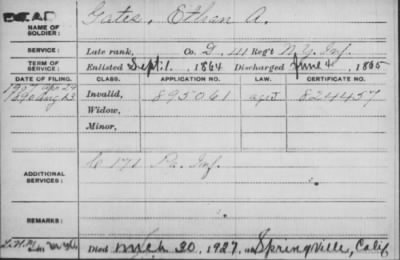 DEAD
NAME OF SOLDIER: Gates, Ethan A.
SERVICE: Late rank, Co. D, 111 Reg't N.Y. Inf.
TERM OF SERVICE: Enlisted Sept. 1, 1864 Discharged June 4, 1865
DATE OF FILING. CLASS. APPLICATION NO. LAW. CERTIFICATE NO.
1907 Apr 29
1890 Aug 13 Invalid, 895061 aged 824457
Widow,
Minor,
ADDITIONAL SERVICES: C 171 Pa. Inf.
REMARKS:
Died Mch 30, 1927, at Springville, Calif